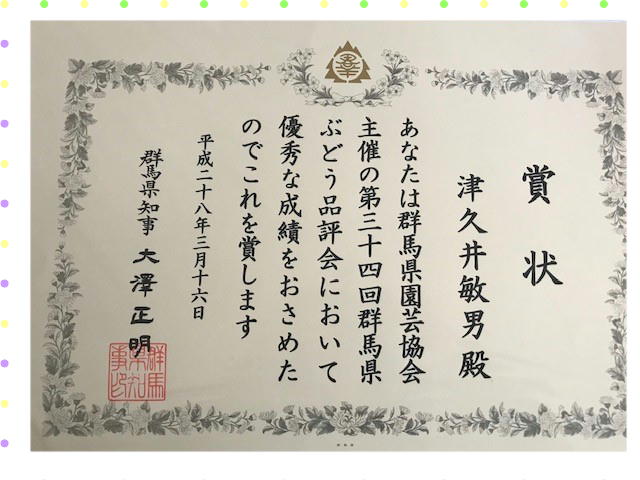 賞状
津久井敏男殿
あなたは群馬県園芸協会
主催の第三十四回群馬県
ぶどう品評会において
優秀な成績をおさめた
のでこれを賞します
平成二十八年三月十六日
群馬県知事 大澤正明
群馬県知事印